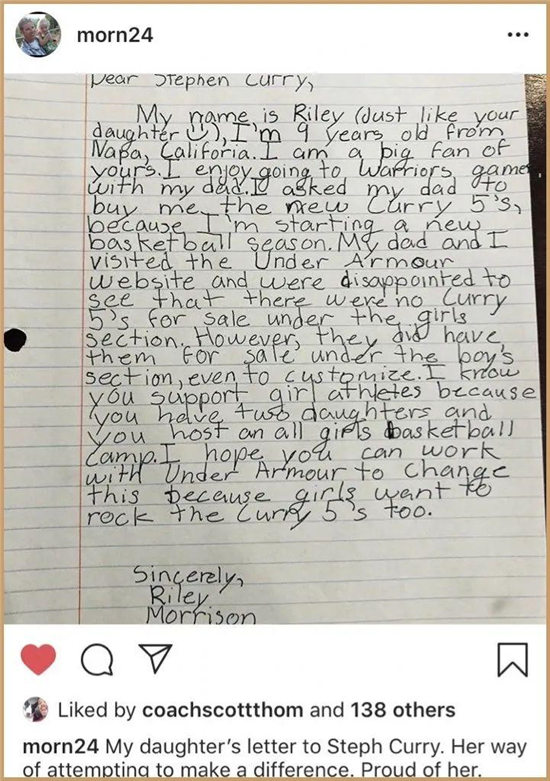 morn24
Dear Stephen Curry,
My name is Riley (Just like your
daughter), I'm 9 years old from
Napa, Califoria. I am a big fan of
yours. I enjoy going to Warriors games
with my dad. I asked my dad to
buy me the new Curry 5's,
because I'm starting a new
basketball season. My dad and I
visited the Under Armour
website and were disappointed to
see that there were no Curry
5's for sale under the girls
section. However, they did have
them for sale under the boy's
section, even to customize. I know
you support girl athletes because
you have two daughters and
you host an all girls basketball
camp. I hope you can work
with Under Armour to change
this because girls want to
rock the Curry 5's too.
Sincerely,
Riley
Morrison
Liked by coachscottthom and 138 others
morn24 My daughter's letter to Steph Curry. Her way
of attempting to make a difference. Proud of her.